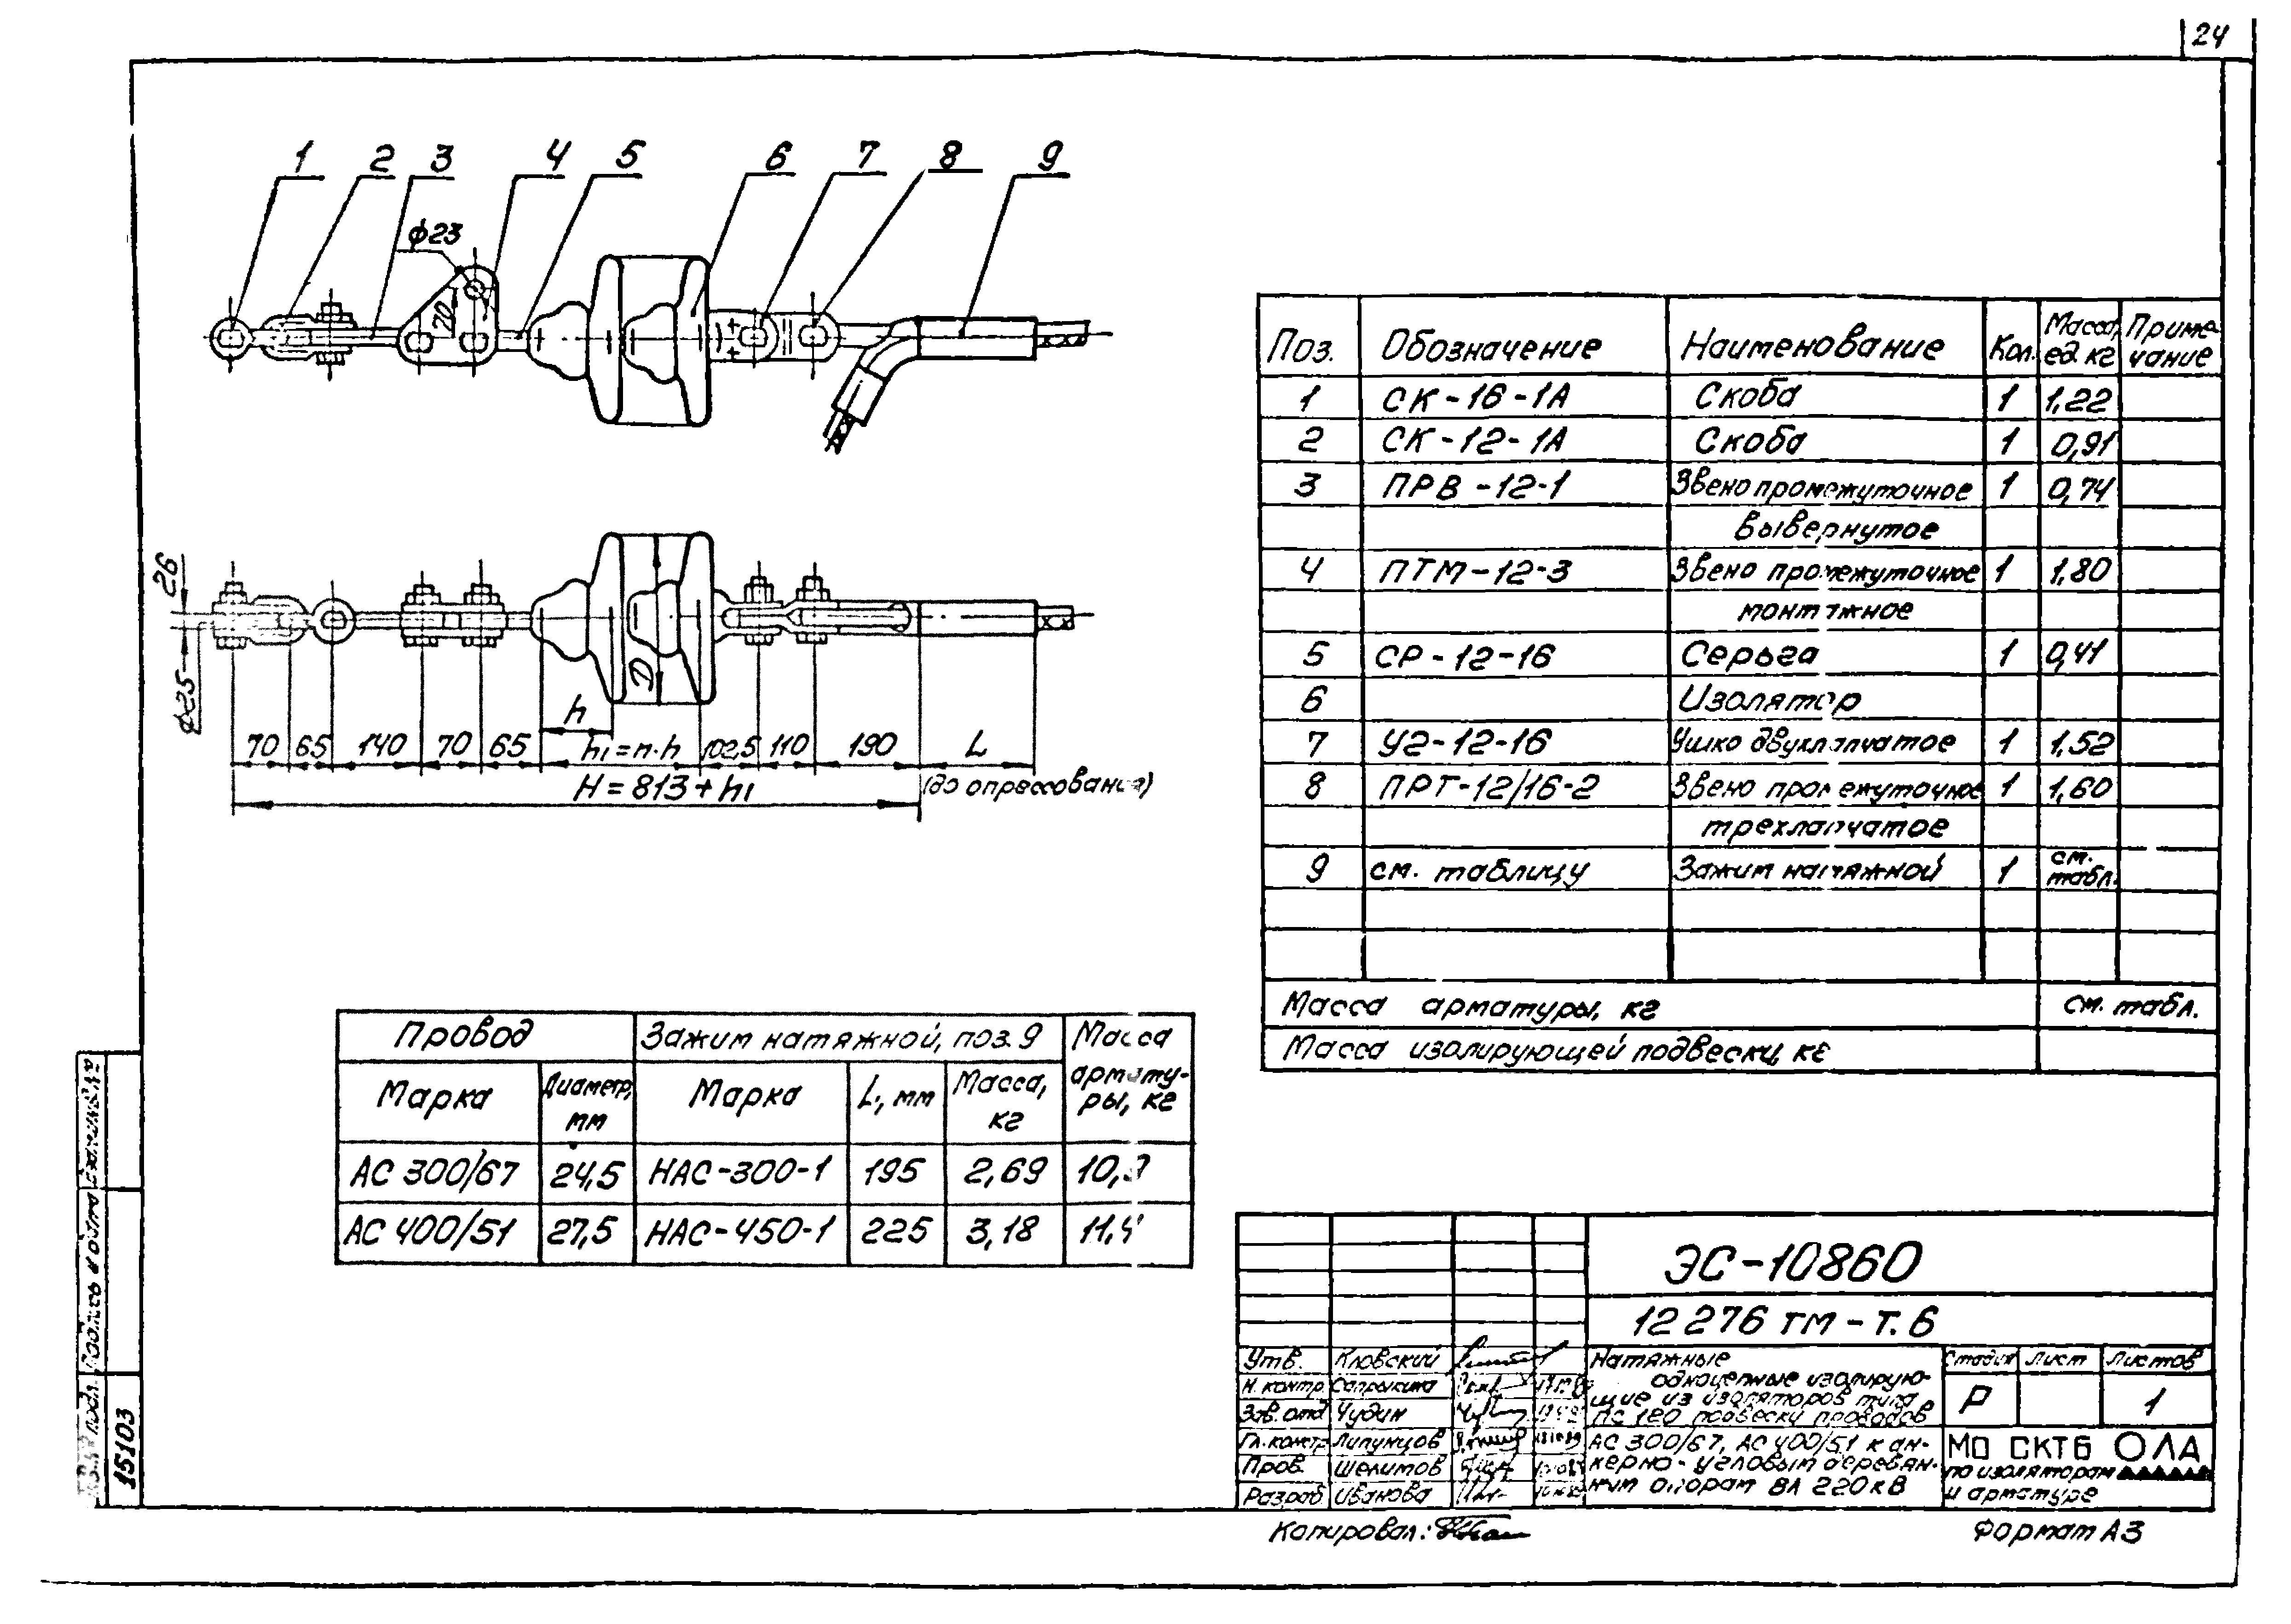 24
1 2 3 4 5 6 7 8 9
ф23
70
26
ф25
D
h
70 65 140 70 65 h1=n·h 102,5 110 190 L
H=813+h1
(до опрессования)
Поз. Обозначение Наименование Кол. Масса, ед. кг Приме-чание
1 СК-16-1А Скоба 1 1,22
2 СК-12-1А Скоба 1 0,91
3 ПРВ-12-1 Звено промежуточное 1 0,74
вывернутое
4 ПТМ-12-3 Звено промежуточное 1 1,80
монтажное
5 СР-12-16 Серьга 1 0,41
6 Изолятор
7 У2-12-16 Ушко двухлапчатое 1 1,52
8 ПРТ-12/16-2 Звено промежуточное 1 1,60
трехлапчатое
9 см. таблицу Зажим натяжной 1 см. табл.
Масса арматуры, кг см. табл.
Масса изолирующей подвески, кг
Провод Зажим натяжной, поз. 9 Масса
Марка Диаметр, мм Марка L, мм Масса, кг армату-ры, кг
АС 300/67 24,5 НАС-300-1 195 2,69 10,9
АС 400/51 27,5 НАС-450-1 225 3,18 11,4
ЭС-10860
12276 тм-т.6
Утв. Кловский
Н. контр. Сапрыкина
Зав. отд Чудин
Гл. контр Липунцов
Пров. Шелимов
Разраб Иванова
Натяжные
одноцепные изолирую-
щие из изоляторов типа
ПС 120 подвески проводов
АС 300/67, АС 400/51 к ан-
керно-угловым деревян-
ным опорам ВЛ 220 кВ
Стадия Лист Листов
Р 1
МО СКТБ ОЛА
по изоляторам
и арматуре
Подпись и дата
15103
Копировал:
Формат А3